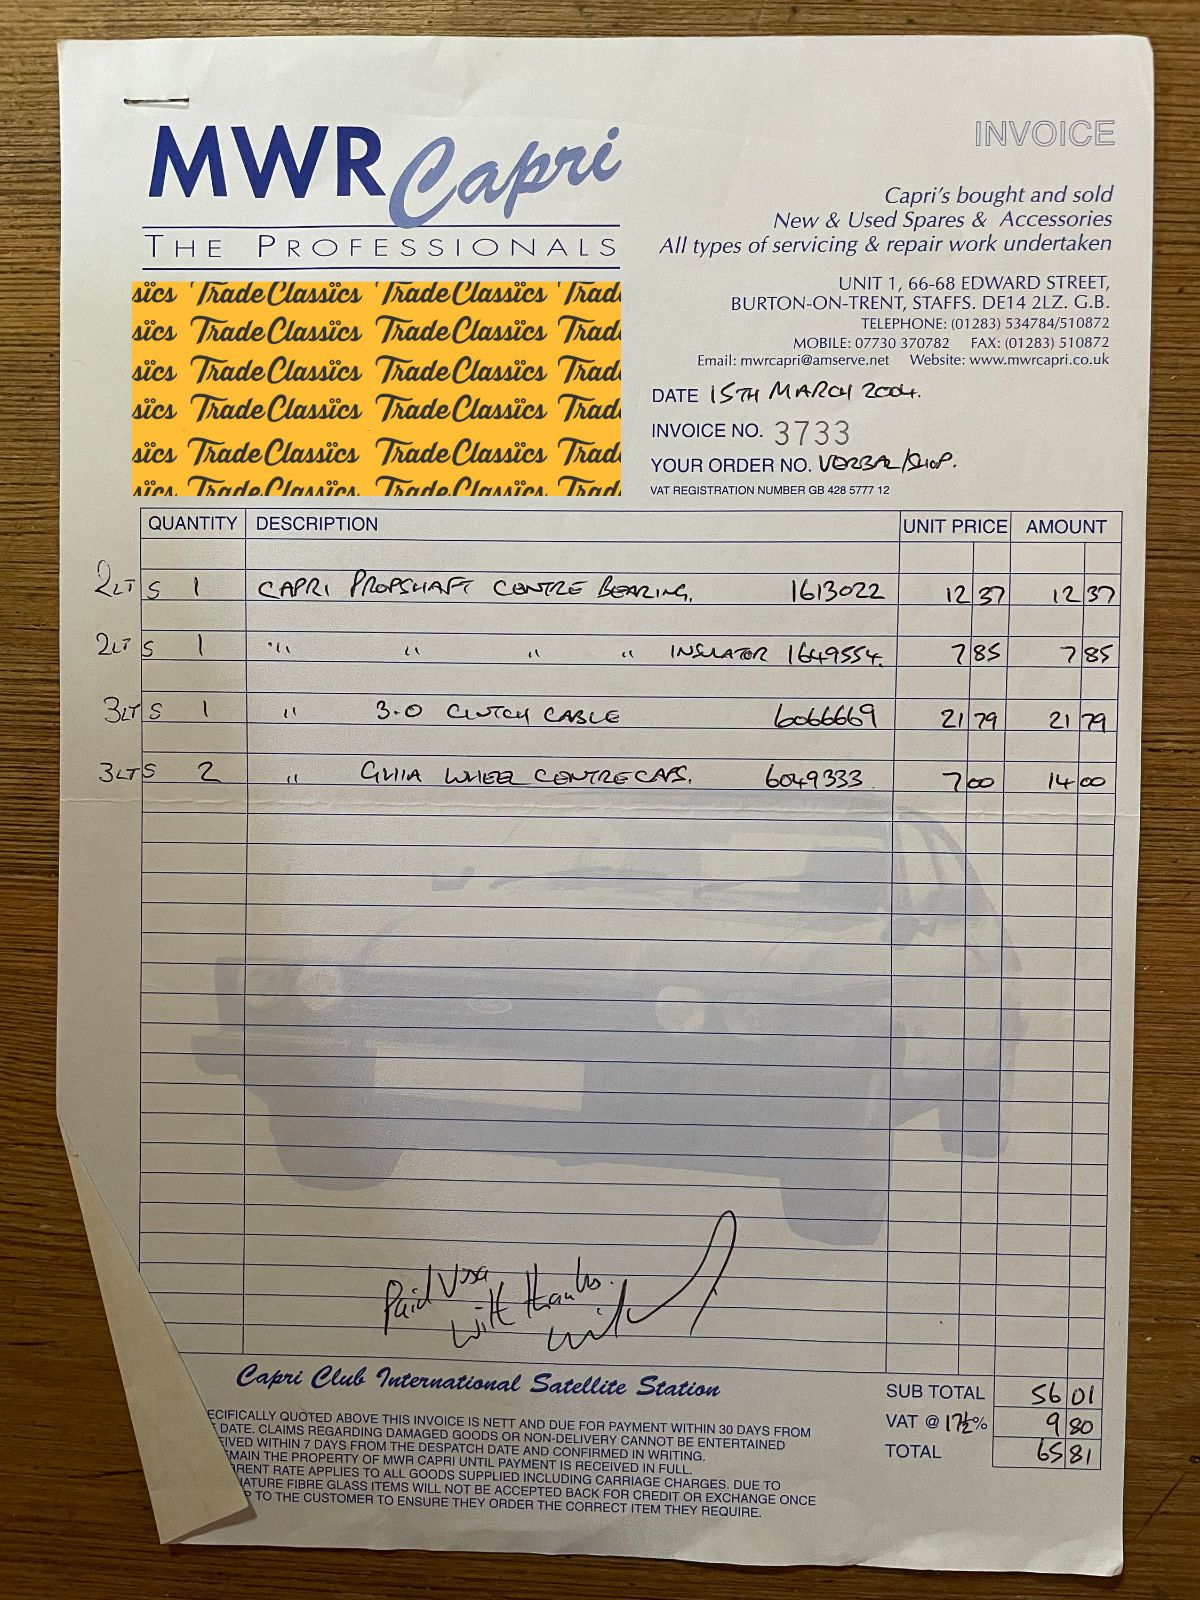 MWR Capri
THE PROFESSIONALS
INVOICE
Capri's bought and sold
New & Used Spares & Accessories
All types of servicing & repair work undertaken
UNIT 1, 66-68 EDWARD STREET,
BURTON-ON-TRENT, STAFFS. DE14 2LZ. G.B.
TELEPHONE: (01283) 534784/510872
MOBILE: 07730 370782 FAX: (01283) 510872
Email: mwrcapri@amserve.net Website: www.mwrcapri.co.uk
sïcs TradeClassïcs TradeClassïcs Trad
sïcs TradeClassïcs TradeClassïcs Trad
sïcs TradeClassïcs TradeClassïcs Trad
sïcs TradeClassïcs TradeClassïcs Trad
sïcs TradeClassïcs TradeClassïcs Trad
sïcs TradeClassïcs TradeClassïcs Trad
DATE 15TH MARCH 2004.
INVOICE NO. 3733
YOUR ORDER NO. VERBAL/SHOP.
VAT REGISTRATION NUMBER GB 428 5777 12
QUANTITY DESCRIPTION UNIT PRICE AMOUNT
2LT S 1 CAPRI PROPSHAFT CENTRE BEARING, 1613022 12 37 12 37
2LT S 1 " " " " INSULATOR 1649554. 7 85 7 85
3LT S 1 " 3.0 CLUTCH CABLE 6066669 21 79 21 79
3LT S 2 " GHIA WHEEL CENTRE CAPS. 6049333 7 00 14 00
Paid Visa
with thanks.
Capri Club International Satellite Station
SUB TOTAL 56 01
VAT @ 17½% 9 80
TOTAL 65 81
ECIFICALLY QUOTED ABOVE THIS INVOICE IS NETT AND DUE FOR PAYMENT WITHIN 30 DAYS FROM
DATE. CLAIMS REGARDING DAMAGED GOODS OR NON-DELIVERY CANNOT BE ENTERTAINED
IVED WITHIN 7 DAYS FROM THE DESPATCH DATE AND CONFIRMED IN WRITING.
MAIN THE PROPERTY OF MWR CAPRI UNTIL PAYMENT IS RECEIVED IN FULL.
RENT RATE APPLIES TO ALL GOODS SUPPLIED INCLUDING CARRIAGE CHARGES. DUE TO
ATURE FIBRE GLASS ITEMS WILL NOT BE ACCEPTED BACK FOR CREDIT OR EXCHANGE ONCE
P TO THE CUSTOMER TO ENSURE THEY ORDER THE CORRECT ITEM THEY REQUIRE.